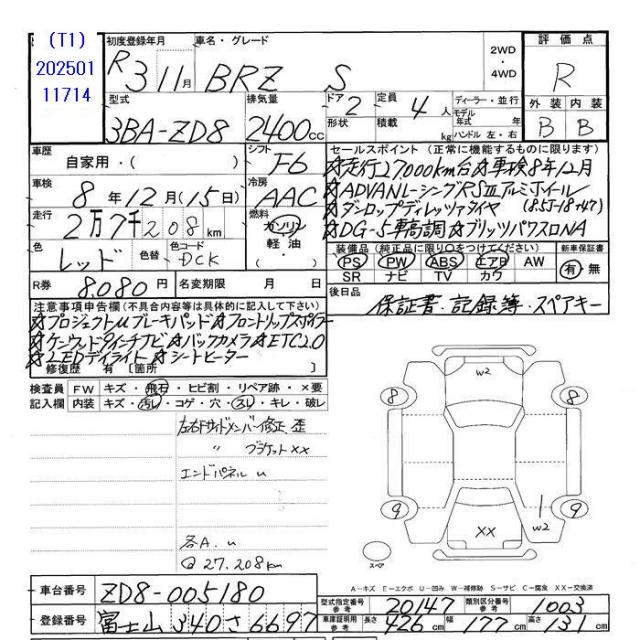 (T1)
202501
11714
初度登録年月
R3 11月
車名・グレード
BRZ S
2WD
・
4WD
評価点
R
外装 内装
B B
型式
3BA-ZD8
排気量
2400cc
ドア 2
形状
定員 4人
積載 kg
ディーラー・並行
モデル年式
ハンドル 左・右
車歴
自家用・( )
シフト
F6
セールスポイント(正常に機能するものに限ります)
☆走行27000km台☆車検8年12月
☆ADVANレーシングRSⅢアルミホイール
☆ダンロップディレッツァタイヤ (8.5J-18+47)
☆DG-5車高調☆ブリッツパワスロNA
車検
8年12月(15日)
冷房
AAC
走行
2万7千208km
燃料
ガソリン
軽油
・
( )
色
レッド
色替
色コード
DCK
装備品(純正品に限り○をつけてください)
PS PW ABS エアB AW
SR ナビ TV カワ
新車保証書
有・無
R券
8,080円
名変期限 月 日
後日品
保証書・記録簿・スペアキー
注意事項申告欄(不具合内容等は具体的に記入して下さい)
☆プロジェクトμブレーキパッド☆フロントリップスポイラー
☆ケンウッド9インチナビ☆バックカメラ☆ETC2.0
☆LEDデイライト☆シートヒーター
修復歴 有〔箇所 〕
検査員記入欄
FW キズ・飛石・ヒビ割・リペア跡・×要
内装 キズ・汚レ・コゲ・穴・スレ・キレ・破レ
左右Fサイドメンバー修正、歪
〃 ブラケットXX
エンドパネルu
各A.u
Q 27,208km
w2
8
8
9
9
XX
w2
スペア
A-キズ E-エクボ U-凹み W-補修跡 S-サビ C-腐食 XX-交換済
車台番号
ZD8-005180
型式指定番号 参考
20147
類別区分番号 参考
1003
登録番号
富士山 340 さ 6697
車庫証明用 参考
長さ 426cm
幅 177cm
高さ 131cm